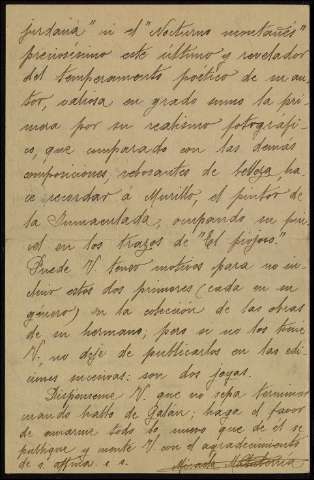 jurdana" ni el "Nocturno montañés"
preciosísimo este último y revelador
del temperamento poético de su au-
tor, valiosa en grado sumo la pri-
mera por su realismo fotográfi-
co, que comparado con las demás
composiciones, rebosantes de belleza, ha-
ce recordar á Murillo, el pintor de
la Inmaculada, ocupando su pin-
cel en los trazos de "El piojoso".
Puede V. tener motivos para no in-
cluir estos dos primores (cada en su
género) en la colección de las obras
de su hermano; pero si no los tiene
V. no deje de publicarlos en las edi-
ciones sucesivas: son dos joyas.
Dispénseme V. que no sepa terminar
cuando hablo de Galán; haga el favor
de enviarme todo lo nuevo que de él se
publique y cuente V. con el agradecimiento
de s. affma. s. s.